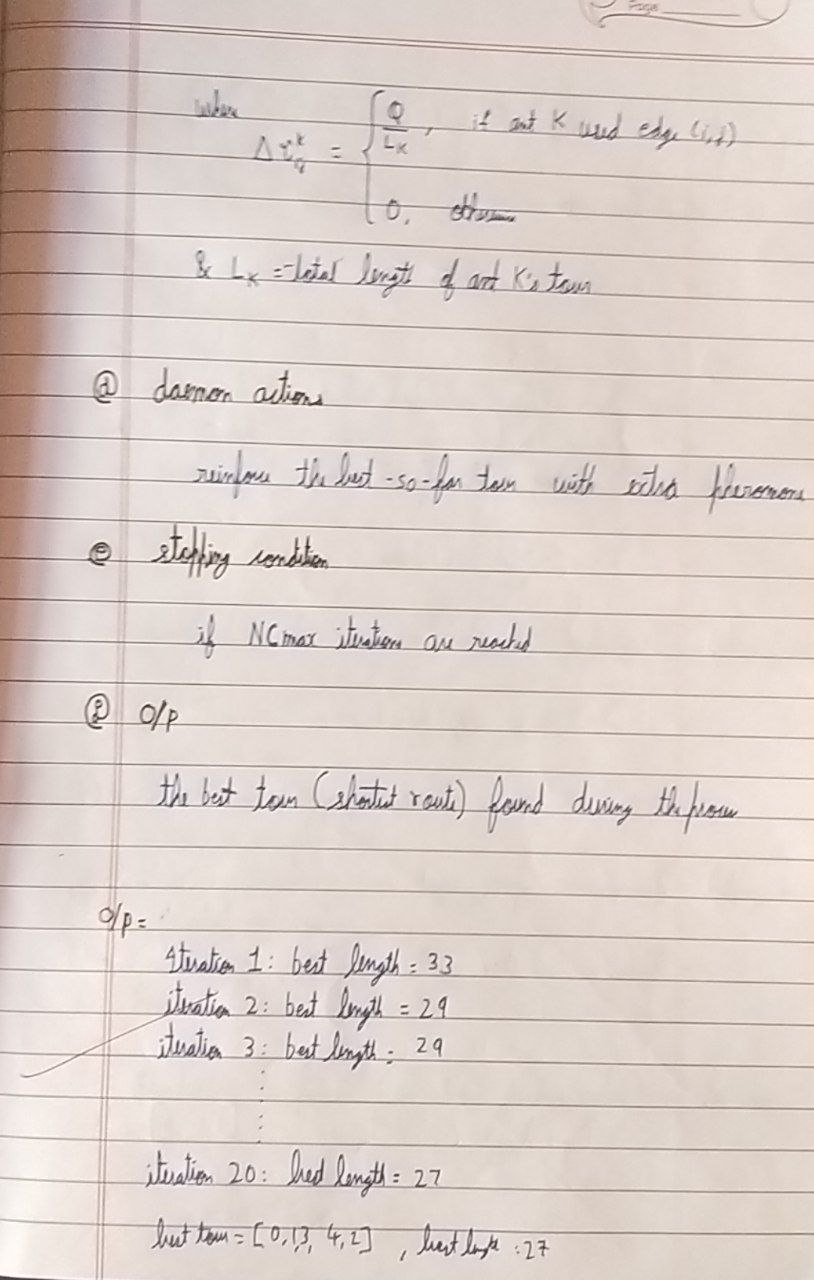 Page
where
Δτᵢⱼᵏ = { Q/L_K , if ant K used edge (i,j)
0, otherwise
& L_K = total length of ant K's tour
ⓓ daemon actions
reinforce the best-so-far tour with extra pheromone
ⓔ stopping condition
if NCmax iterations are reached
ⓕ O/P
the best tour (shortest route) found during the process
O/p =
Iteration 1: best length = 33
iteration 2: best length = 29
iteration 3: best length = 29
iteration 20: best length = 27
best tour = [0,1,3, 4,2] , best length : 27